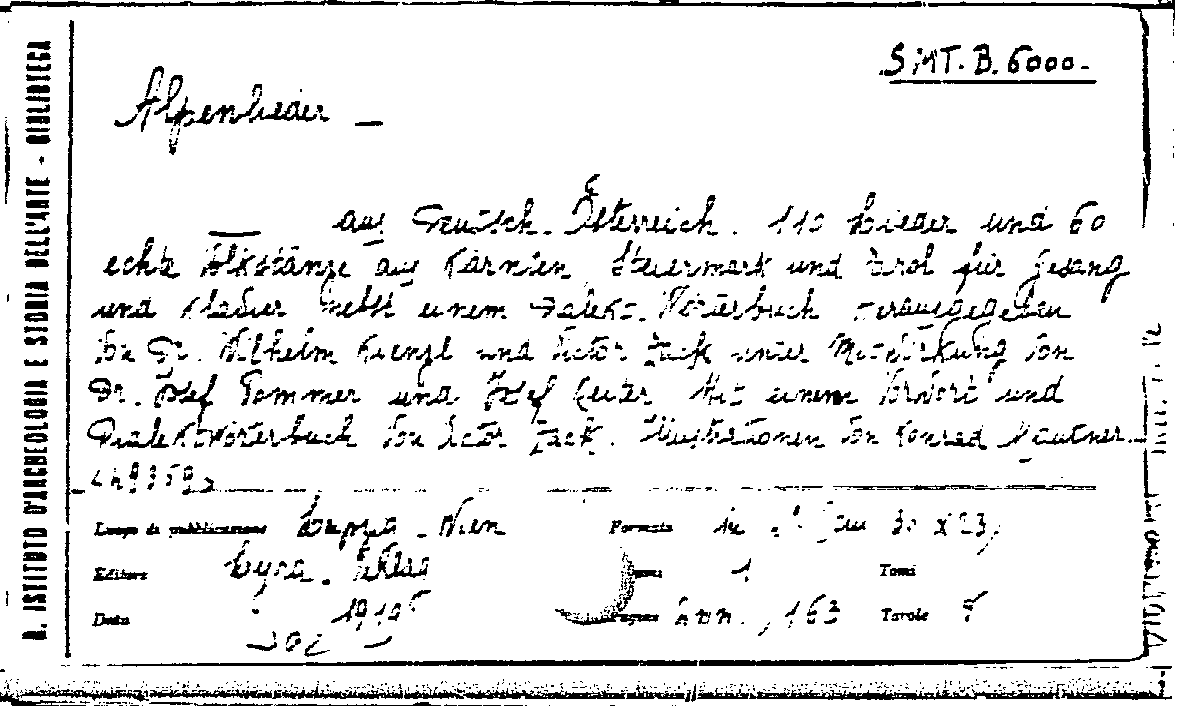 R. ISTITUTO D'ARCHEOLOGIA E STORIA DELL'ARTE - BIBLIOTECA
SMT. B. 6000.
Alpenlieder _
___ aus Deutsch-Österreich. 110 Lieder und 60
echte Volkstänze aus Kärnten, Steiermark und Tirol für Gesang
und Klavier nebst einem Dialekt-Wörterbuch herausgegeben
von Dr. Wilhelm Kienzl und Victor Zack unter Mitwirkung von
Dr. Josef Pommer und Josef Reiter. Mit einem Vorwort und
Dialektwörterbuch von Victor Zack. Illustrationen von Konrad Mautner.
Luogo di pubblicazione Leipzig - Wien Formato in 30 x 23,
Editore Lyra-Verlag 1 Tomi
Data Pagine 2 nn., 163 Tavole